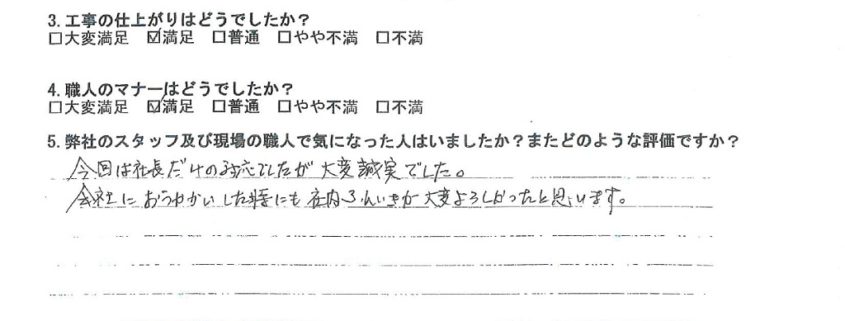 3. 工事の仕上がりはどうでしたか？
□大変満足 ☑満足 □普通 □やや不満 □不満
4. 職人のマナーはどうでしたか？
□大変満足 ☑満足 □普通 □やや不満 □不満
5. 弊社のスタッフ及び現場の職人で気になった人はいましたか？またどのような評価ですか？
今回は社長だけの対応でしたが大変誠実でした。
会社におうかがいした際にも社内ふんいきが大変よろしかったと思います。